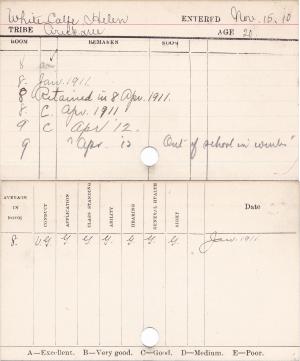 White Calfe Helen ENTERED Nov. 15, 10
TRIBE Arickaree AGE 20
ROOM REMARKS ROOM
8
8 Jan. 1911.
8 Retained in 8 Apr. 1911.
8 C. Apr. 1911
9 C Apr '12.
9 " Apr. '13 "Out of school in winter"
AVERAGE IN ROOM CONDUCT APPLICATION CLASS STANDING ABILITY HEARING GENERAL HEALTH SIGHT Date
8. V.G. G. G. G. G. G. G. Jan. 1911
A—Excellent. B—Very good. C—Good. D—Medium. E—Poor.